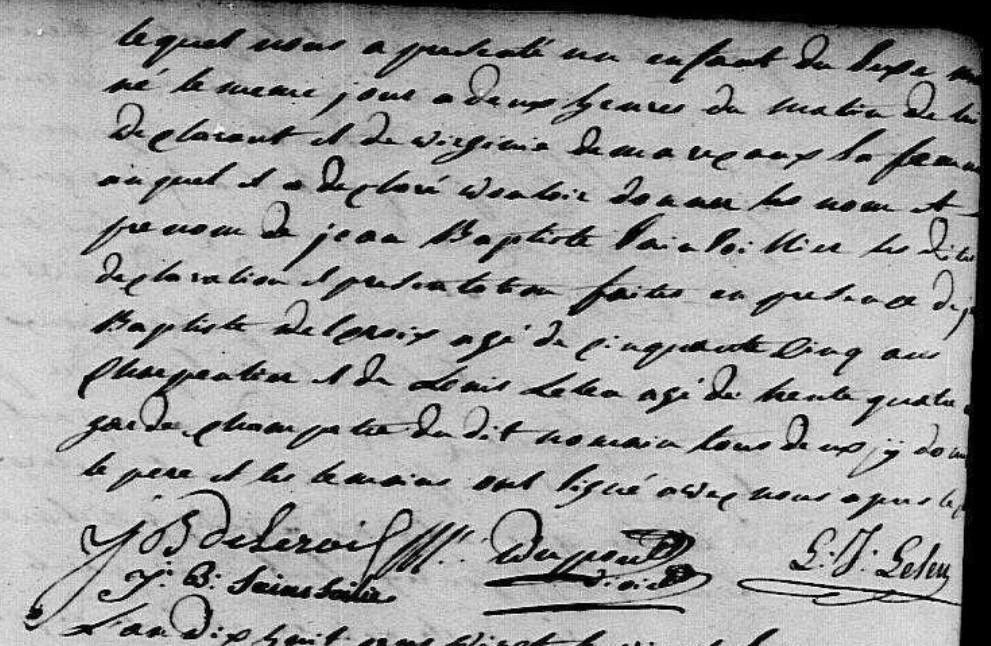 lequel nous a presenté un enfant du sexe
né le meme jour a deux heures du matin de lui
declarant et de virginie demareaux sa femme
auquel il a declaré vouloir donner les nom et
prenom de jean Baptiste les dites
declaration et presentation faites en presence de
Baptiste delcroix agé de cinquante cinq ans
Charpentier et de Louis Leleu agé de trente quatre
garde champetre du dit nomain tous deux y dom
le pere et les temoins ont signé avec nous apres le
J B deLcroix Dupont L. J. Leleu
J. B.
L'an dix huit cent vingt le